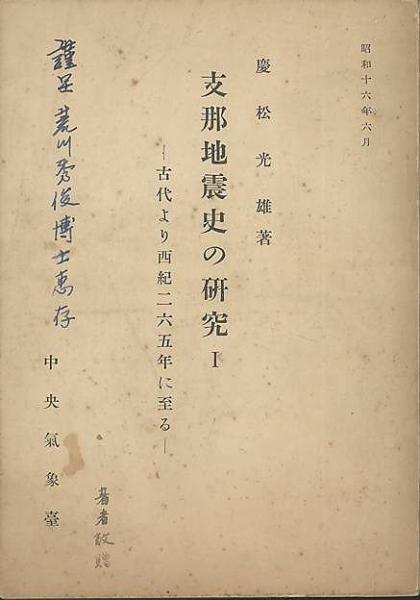 昭和十六年六月
慶松光雄著
支那地震史の研究 I
―古代より西紀二六五年に至る―
中央氣象臺
謹呈 荒川秀俊博士惠存
著者敬贈